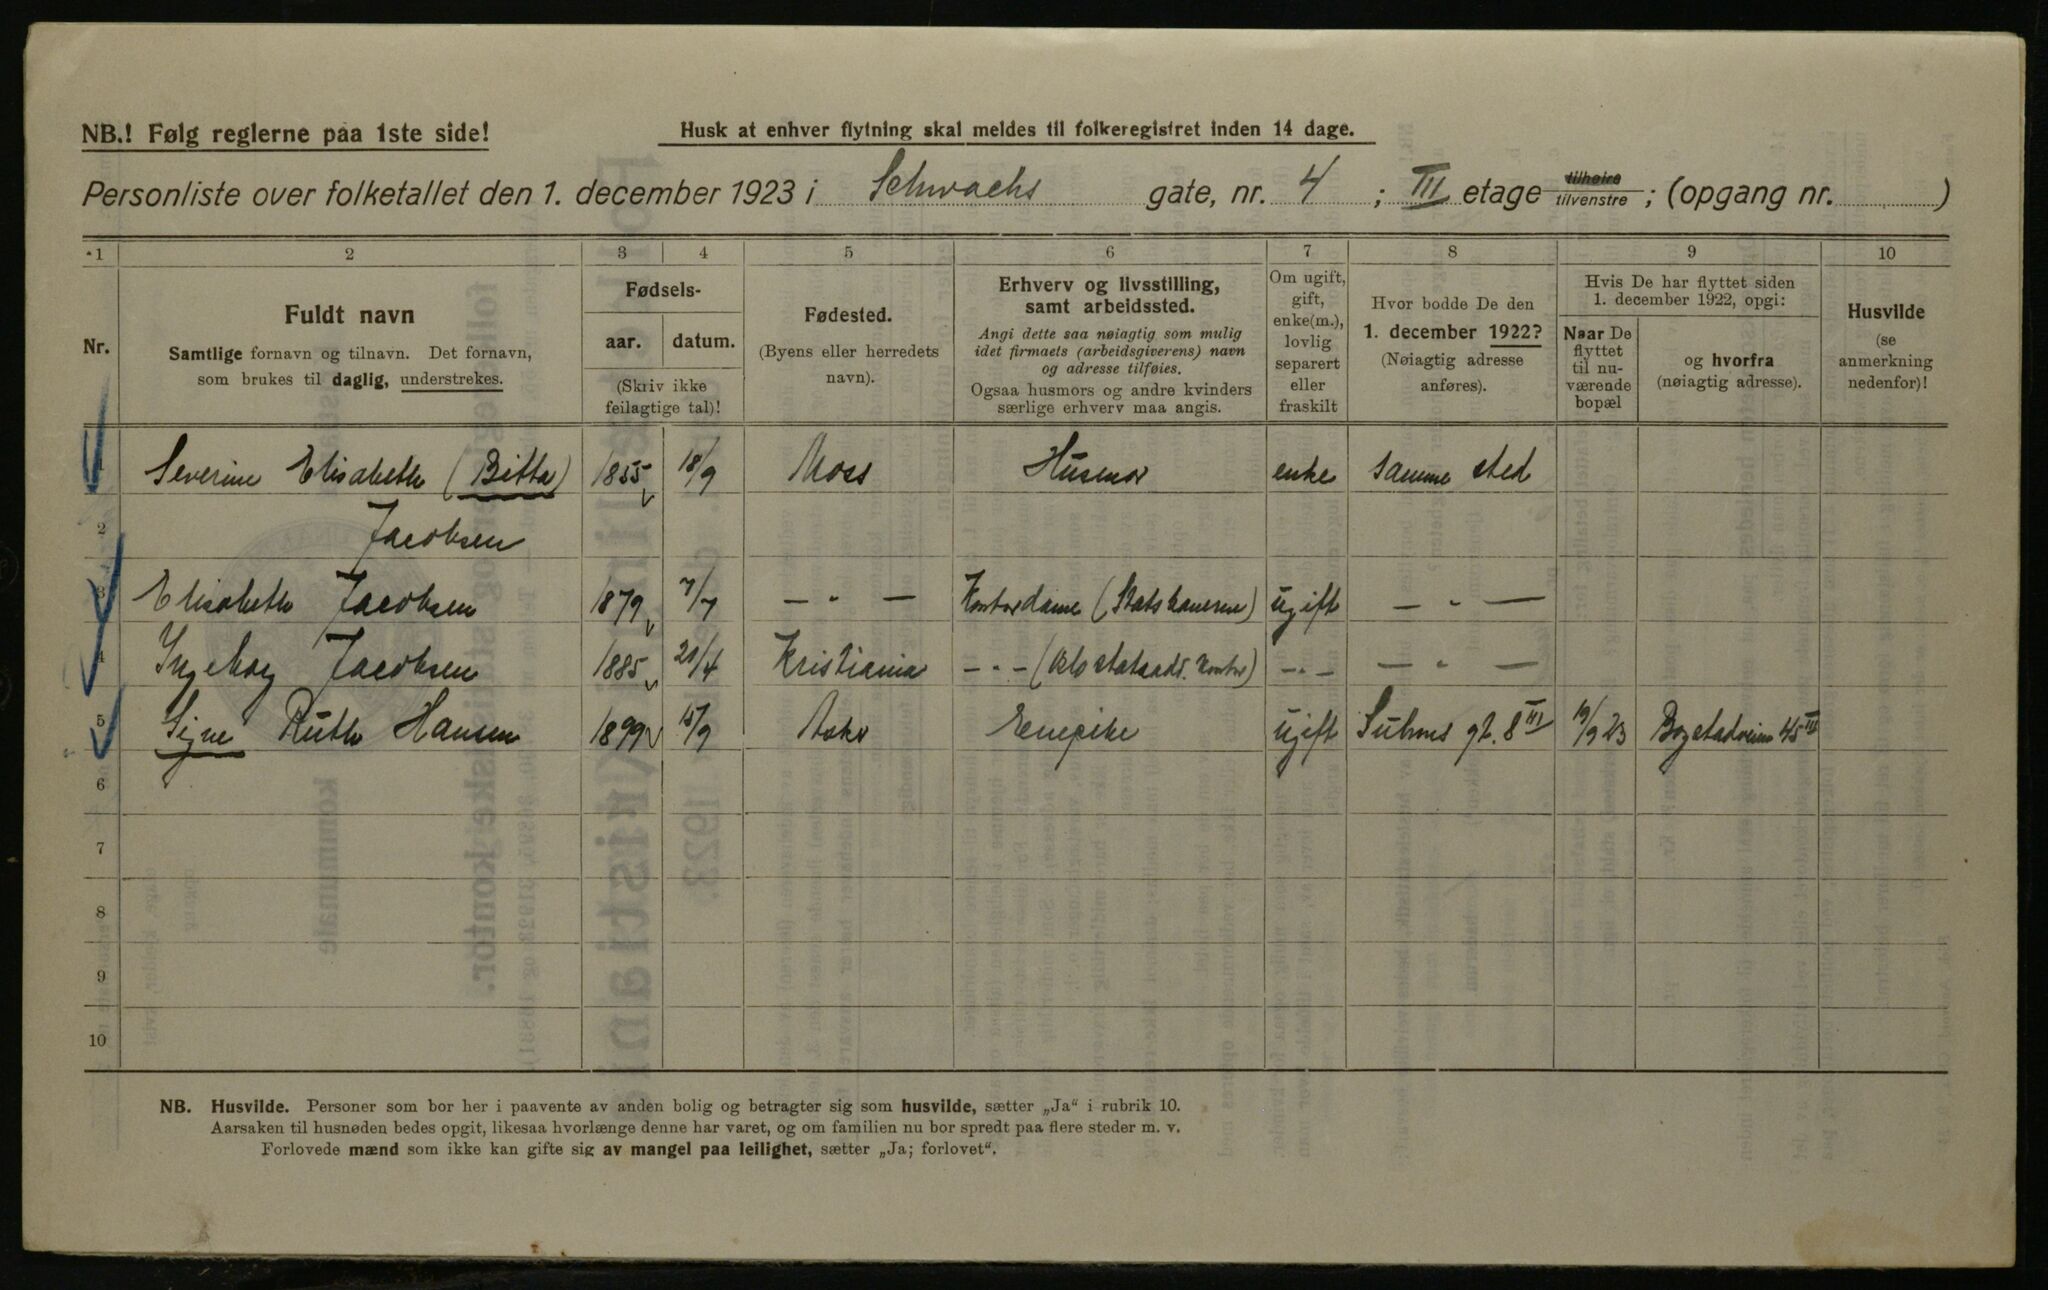 NB.! Følg reglerne paa 1ste side!
Husk at enhver flytning skal meldes til folkeregistret inden 14 dage.
Personliste over folketallet den 1. december 1923 i Schwachs gate, nr. 4 ; III etage tilhøire tilvenstre ; (opgang nr. )
1 2 3 4 5 6 7 8 9 10
Nr.
Fuldt navn
Samtlige fornavn og tilnavn. Det fornavn,
som brukes til daglig, understrekes.
Fødsels-
aar. datum.
(Skriv ikke
feilagtige tal)!
Fødested.
(Byens eller herredets
navn).
Erhverv og livsstilling,
samt arbeidssted.
Angi dette saa nøiagtig som mulig
idet firmaets (arbeidsgiverens) navn
og adresse tilføies.
Ogsaa husmors og andre kvinders
særlige erhverv maa angis.
Om ugift,
gift,
enke(m.),
lovlig
separert
eller
fraskilt
Hvor bodde De den
1. december 1922?
(Nøiagtig adresse
anføres).
Hvis De har flyttet siden
1. december 1922, opgi:
Naar De
flyttet
til nu-
værende
bopæl
og hvorfra
(nøiagtig adresse).
Husvilde
(se
anmerkning
nedenfor)!
1 Severine Elisabeth (Bitta) 1855 18/9 Moss Husmor enke samme sted
2 Jacobsen
3 Elisabeth Jacobsen 1879 7/7 — " — Kontordame (Statsbanerne) ugift — " —
4 Ingeborg Jacobsen 1885 21/4 Kristiania — " — ( Kontor) — " — — " —
5 Signe Ruth Hansen 1899 15/9 Asker Enepike ugift Suhms gt. 8 III 19/9 23 Bogstadveien 45 III
6
7
8
9
10
NB. Husvilde. Personer som bor her i paavente av anden bolig og betragter sig som husvilde, sætter „Ja“ i rubrik 10.
Aarsaken til husnøden bedes opgit, likesaa hvorlænge denne har varet, og om familien nu bor spredt paa flere steder m. v.
Forlovede mænd som ikke kan gifte sig av mangel paa leilighet, sætter „Ja; forlovet“.